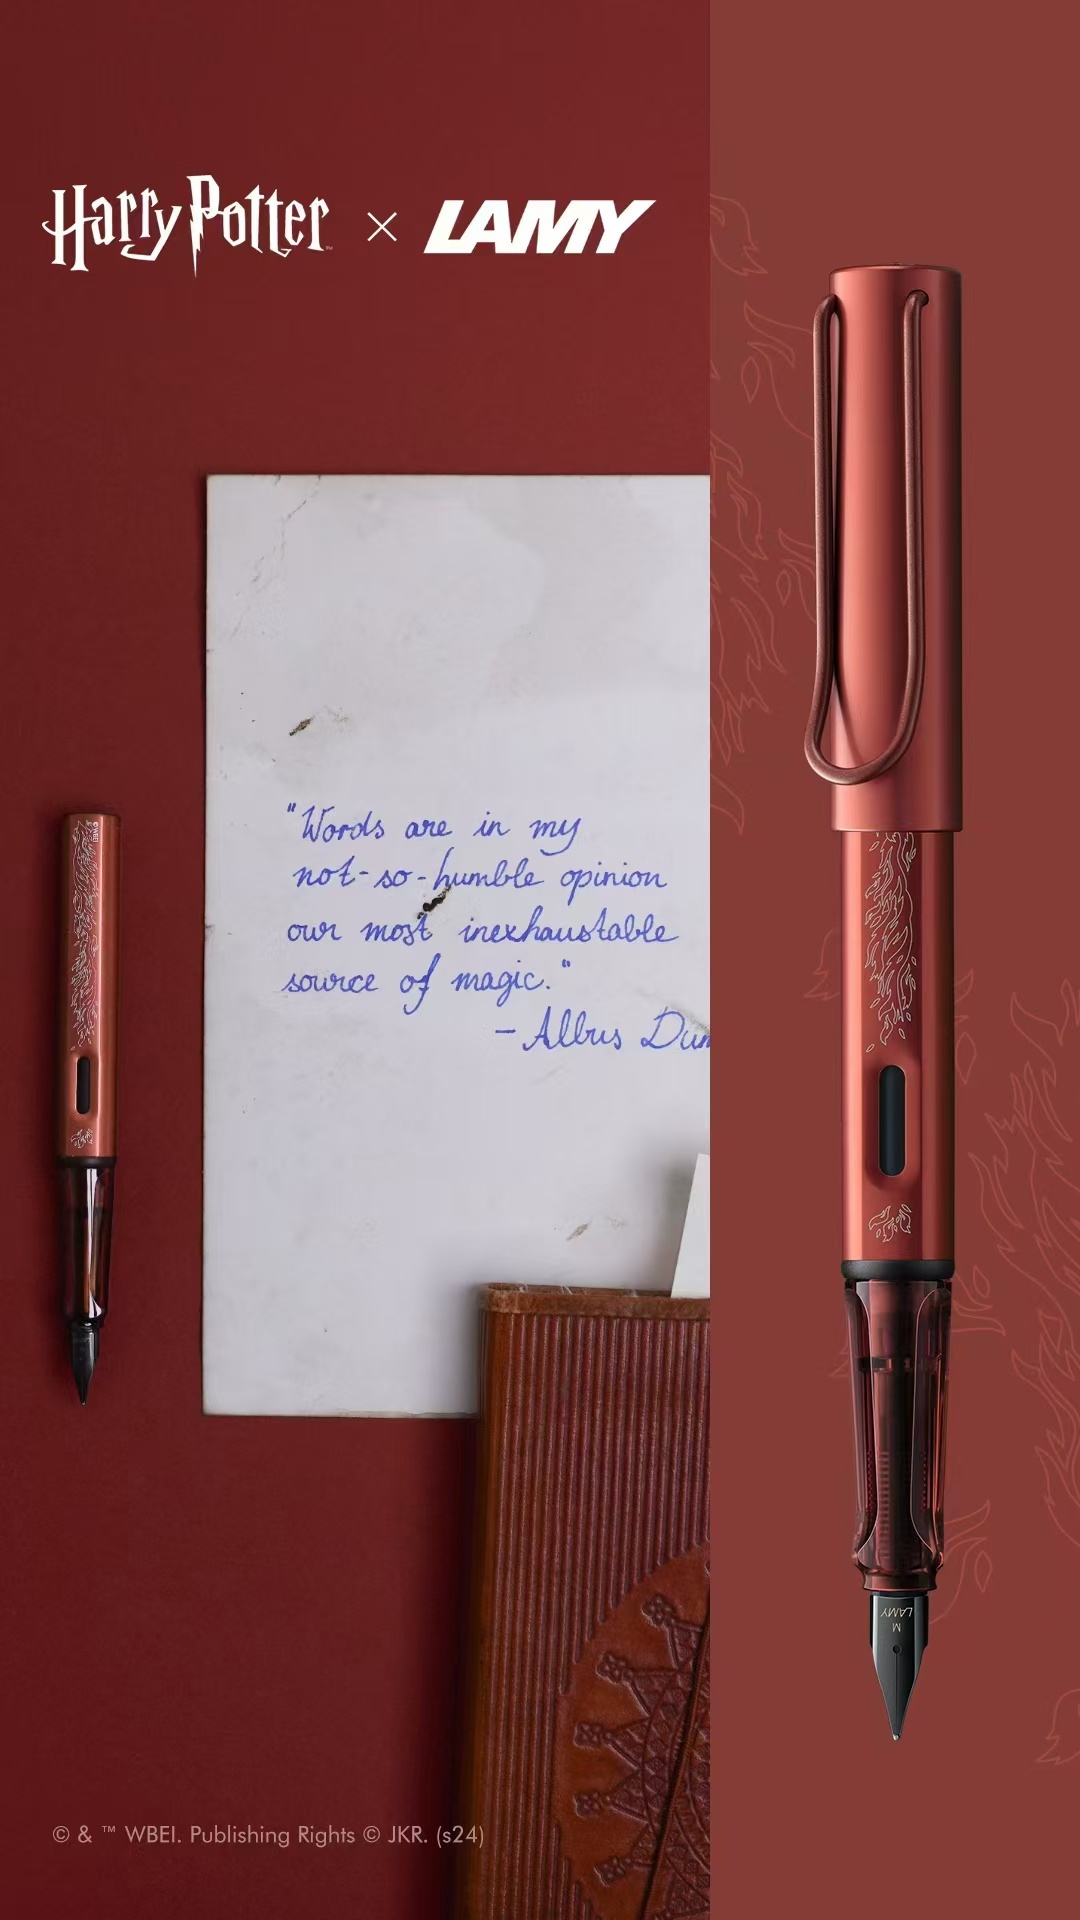 Harry Potter × LAMY
"Words are in my
not-so-humble opinion
our most inexhaustable
source of magic."
- Albus Dum
© & ™ WBEI. Publishing Rights © JKR. (s24)
©WBEI
LAMY
M